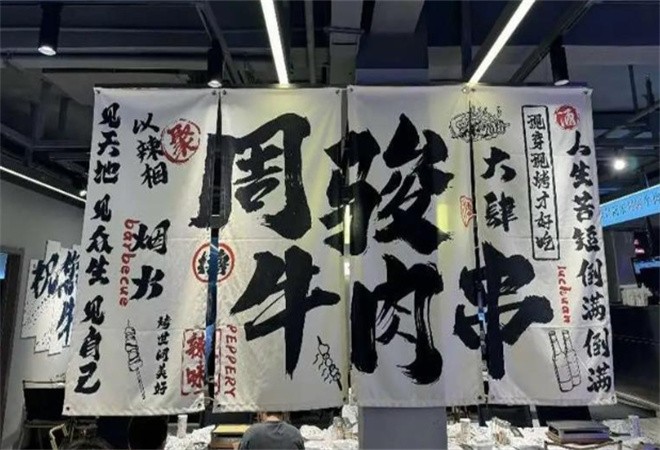 见天地 见众生 见自己
以辣相
聚
烟火
barbecue
世间美好
辣味
PEPPERY
周骏
牛肉串
大肆
现穿现烤才好吃
人生苦短倒满倒满
luchuan